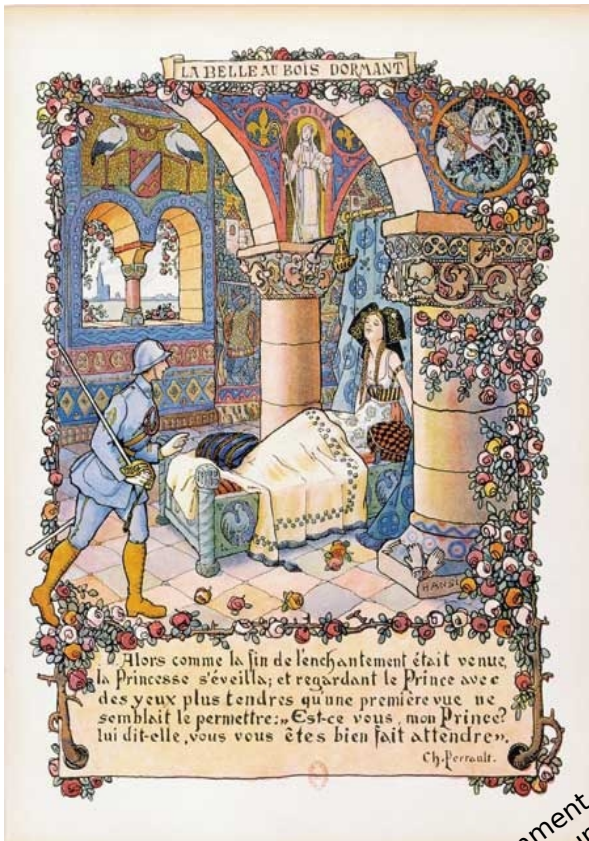 LA BELLE AU BOIS DORMANT
ODILIA
HANSI
Alors comme la fin de l'enchantement était venue,
la Princesse s'éveilla; et regardant le Prince avec
des yeux plus tendres qu'une première vue ne
semblait le permettre: „Est-ce vous, mon Prince?
lui dit-elle, vous vous êtes bien fait attendre".
Ch. Perrault.